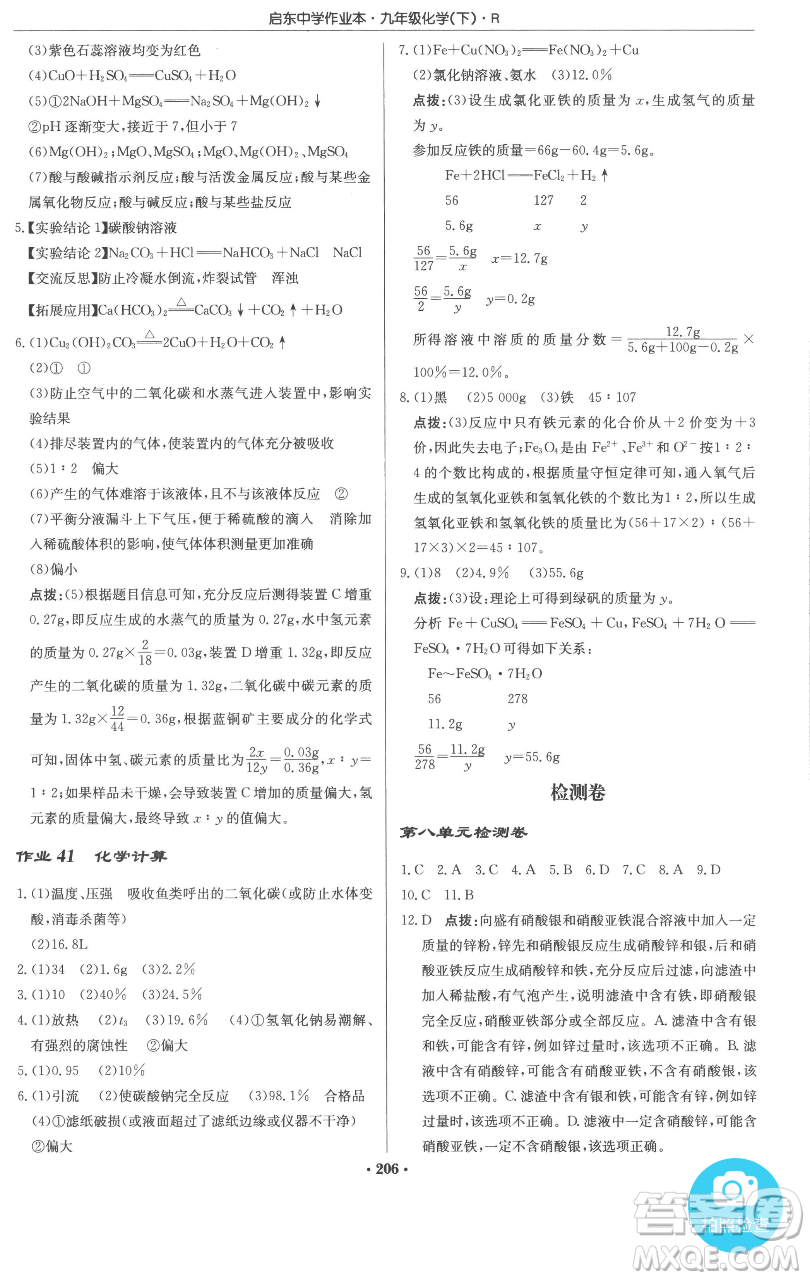 启东中学作业本·九年级化学(下)·R
(3)紫色石蕊溶液均变为红色
(4)CuO+H₂SO₄══CuSO₄+H₂O
(5)①2NaOH+MgSO₄══Na₂SO₄+Mg(OH)₂↓
②pH逐渐变大,接近于7,但小于7
(6)Mg(OH)₂;MgO、MgSO₄;Mg(OH)₂、MgSO₄
(7)酸与酸碱指示剂反应;酸与活泼金属反应;酸与某些金
属氧化物反应;酸与碱反应;酸与某些盐反应
5.【实验结论1】碳酸钠溶液
【实验结论2】Na₂CO₃+HCl══NaHCO₃+NaCl NaCl
【交流反思】防止冷凝水倒流,炸裂试管 浑浊
【拓展应用】Ca(HCO₃)₂═△═CaCO₃↓+CO₂↑+H₂O
6.(1)Cu₂(OH)₂CO₃═△═2CuO+H₂O+CO₂↑
(2)① ①
(3)防止空气中的二氧化碳和水蒸气进入装置中,影响实
验结果
(4)排尽装置内的气体,使其充分被吸收
(5)1∶2 偏大
(6)产生的气体难溶于该液体,且不与该液体反应 ②
(7)平衡分液漏斗上下气压,便于稀硫酸的滴入 消除加
入稀硫酸体积的影响,使测定结果更准确
(8)偏小
点拨:(5)根据题目信息可知,充分反应后测得装置C增重
0.27g,即反应后生成的水蒸气的质量为0.27g,水中氢元素
的质量为0.27g×2/18=0.03g,装置D增重1.32g,即反应
产生的二氧化碳的质量为1.32g,二氧化碳中碳元素的质
量为1.32g×12/44=0.36g,根据蓝铜矿主要成分的化学式
可知,固体中氢、碳元素的质量比为2x/12y=0.03g/0.36g,x∶y=
1∶2;如果样品未干燥,则装置C增重的质量偏大,氢元素
质量偏大,最终导致x的值偏大。
作业41 化学计算
1.(1)温度、压强 吸收鱼类呼出的二氧化碳(或防止水体变
酸,消毒杀菌等)
(2)16.8L
2.(1)34 (2)1.6g (3)2.2%
3.(1)10 (2)40% (3)24.5%
4.(1)放热 (2)t₃ (3)19.6% (4)①氢氧化钠易潮解、
有强烈的腐蚀性 ②偏大
5.(1)0.95 (2)10%
6.(1)引流 (2)使碳酸钠完全反应 (3)98.1% 合格品
(4)①滤纸破损(或液面超过了滤纸边缘或仪器不干净)
②偏大
7.(1)Fe+Cu(NO₃)₂══Fe(NO₃)₂+Cu
(2)氯化钠溶液、氨水 (3)12.0%
点拨:(3)设生成氯化亚铁的质量为x,生成氢气的质量
为y。
参加反应铁的质量=66g-60.4g=5.6g。
Fe+2HCl══FeCl₂+H₂↑
56 127 2
5.6g x y
56/127=5.6g/x x=12.7g
56/2=5.6g/y y=0.2g
所得溶液中溶质的质量分数=12.7g/(5.6g+100g-0.2g)×
100%=12.0%。
8.(1)黑 (2)5 000g (3)铁 45∶107
点拨:(3)反应中只有铁元素的化合价从+2价变为+3
价,因此失去电子;Fe₃O₄是由Fe²⁺、Fe³⁺和O²⁻按1∶2∶
4的个数比构成的,根据质量守恒定律可知,通入氧气后
生成的氢氧化亚铁和氢氧化铁的个数比为1∶2,所以生成
氢氧化亚铁和氢氧化铁的质量比为(56+17×2)∶(56+
17×3)×2=45∶107。
9.(1)8 (2)4.9% (3)55.6g
点拨:(3)设:理论上可得到绿矾的质量为y。
分析 Fe+CuSO₄══FeSO₄+Cu,FeSO₄+7H₂O══
FeSO₄·7H₂O可得如下关系:
Fe~FeSO₄·7H₂O
56 278
11.2g y
56/278=11.2g/y y=55.6g
检测卷
第八单元检测卷
1.C 2.A 3.C 4.D 5.C 6.C 7.D 8.A 9.D
10.C 11.B
12.D 点拨:向盛有硝酸银和硝酸亚铁混合溶液中加入一定
质量的锌粉,锌先和硝酸银反应生成硝酸锌和银,后与硝
酸亚铁反应生成硝酸锌和铁,充分反应后过滤,向滤渣中
加入稀盐酸,有气泡产生,说明滤渣中含有铁,则硝酸银
完全反应,硝酸亚铁部分或全部反应。A.滤渣中不一定
含有锌,可能含有锌,例如锌过量时,该选项不正确。B.滤
液中可能含有硝酸亚铁,例如锌不足量时,该选项不正
确。C.滤渣中一定含有银和铁,可能含有锌,例如锌过
量时,该选项不正确。D.滤液中一定含有硝酸锌,可能含有
硝酸亚铁,一定不含有硝酸银,该选项正确。故选D。
·206·
拍照检查
答案圈
MXQE.COM